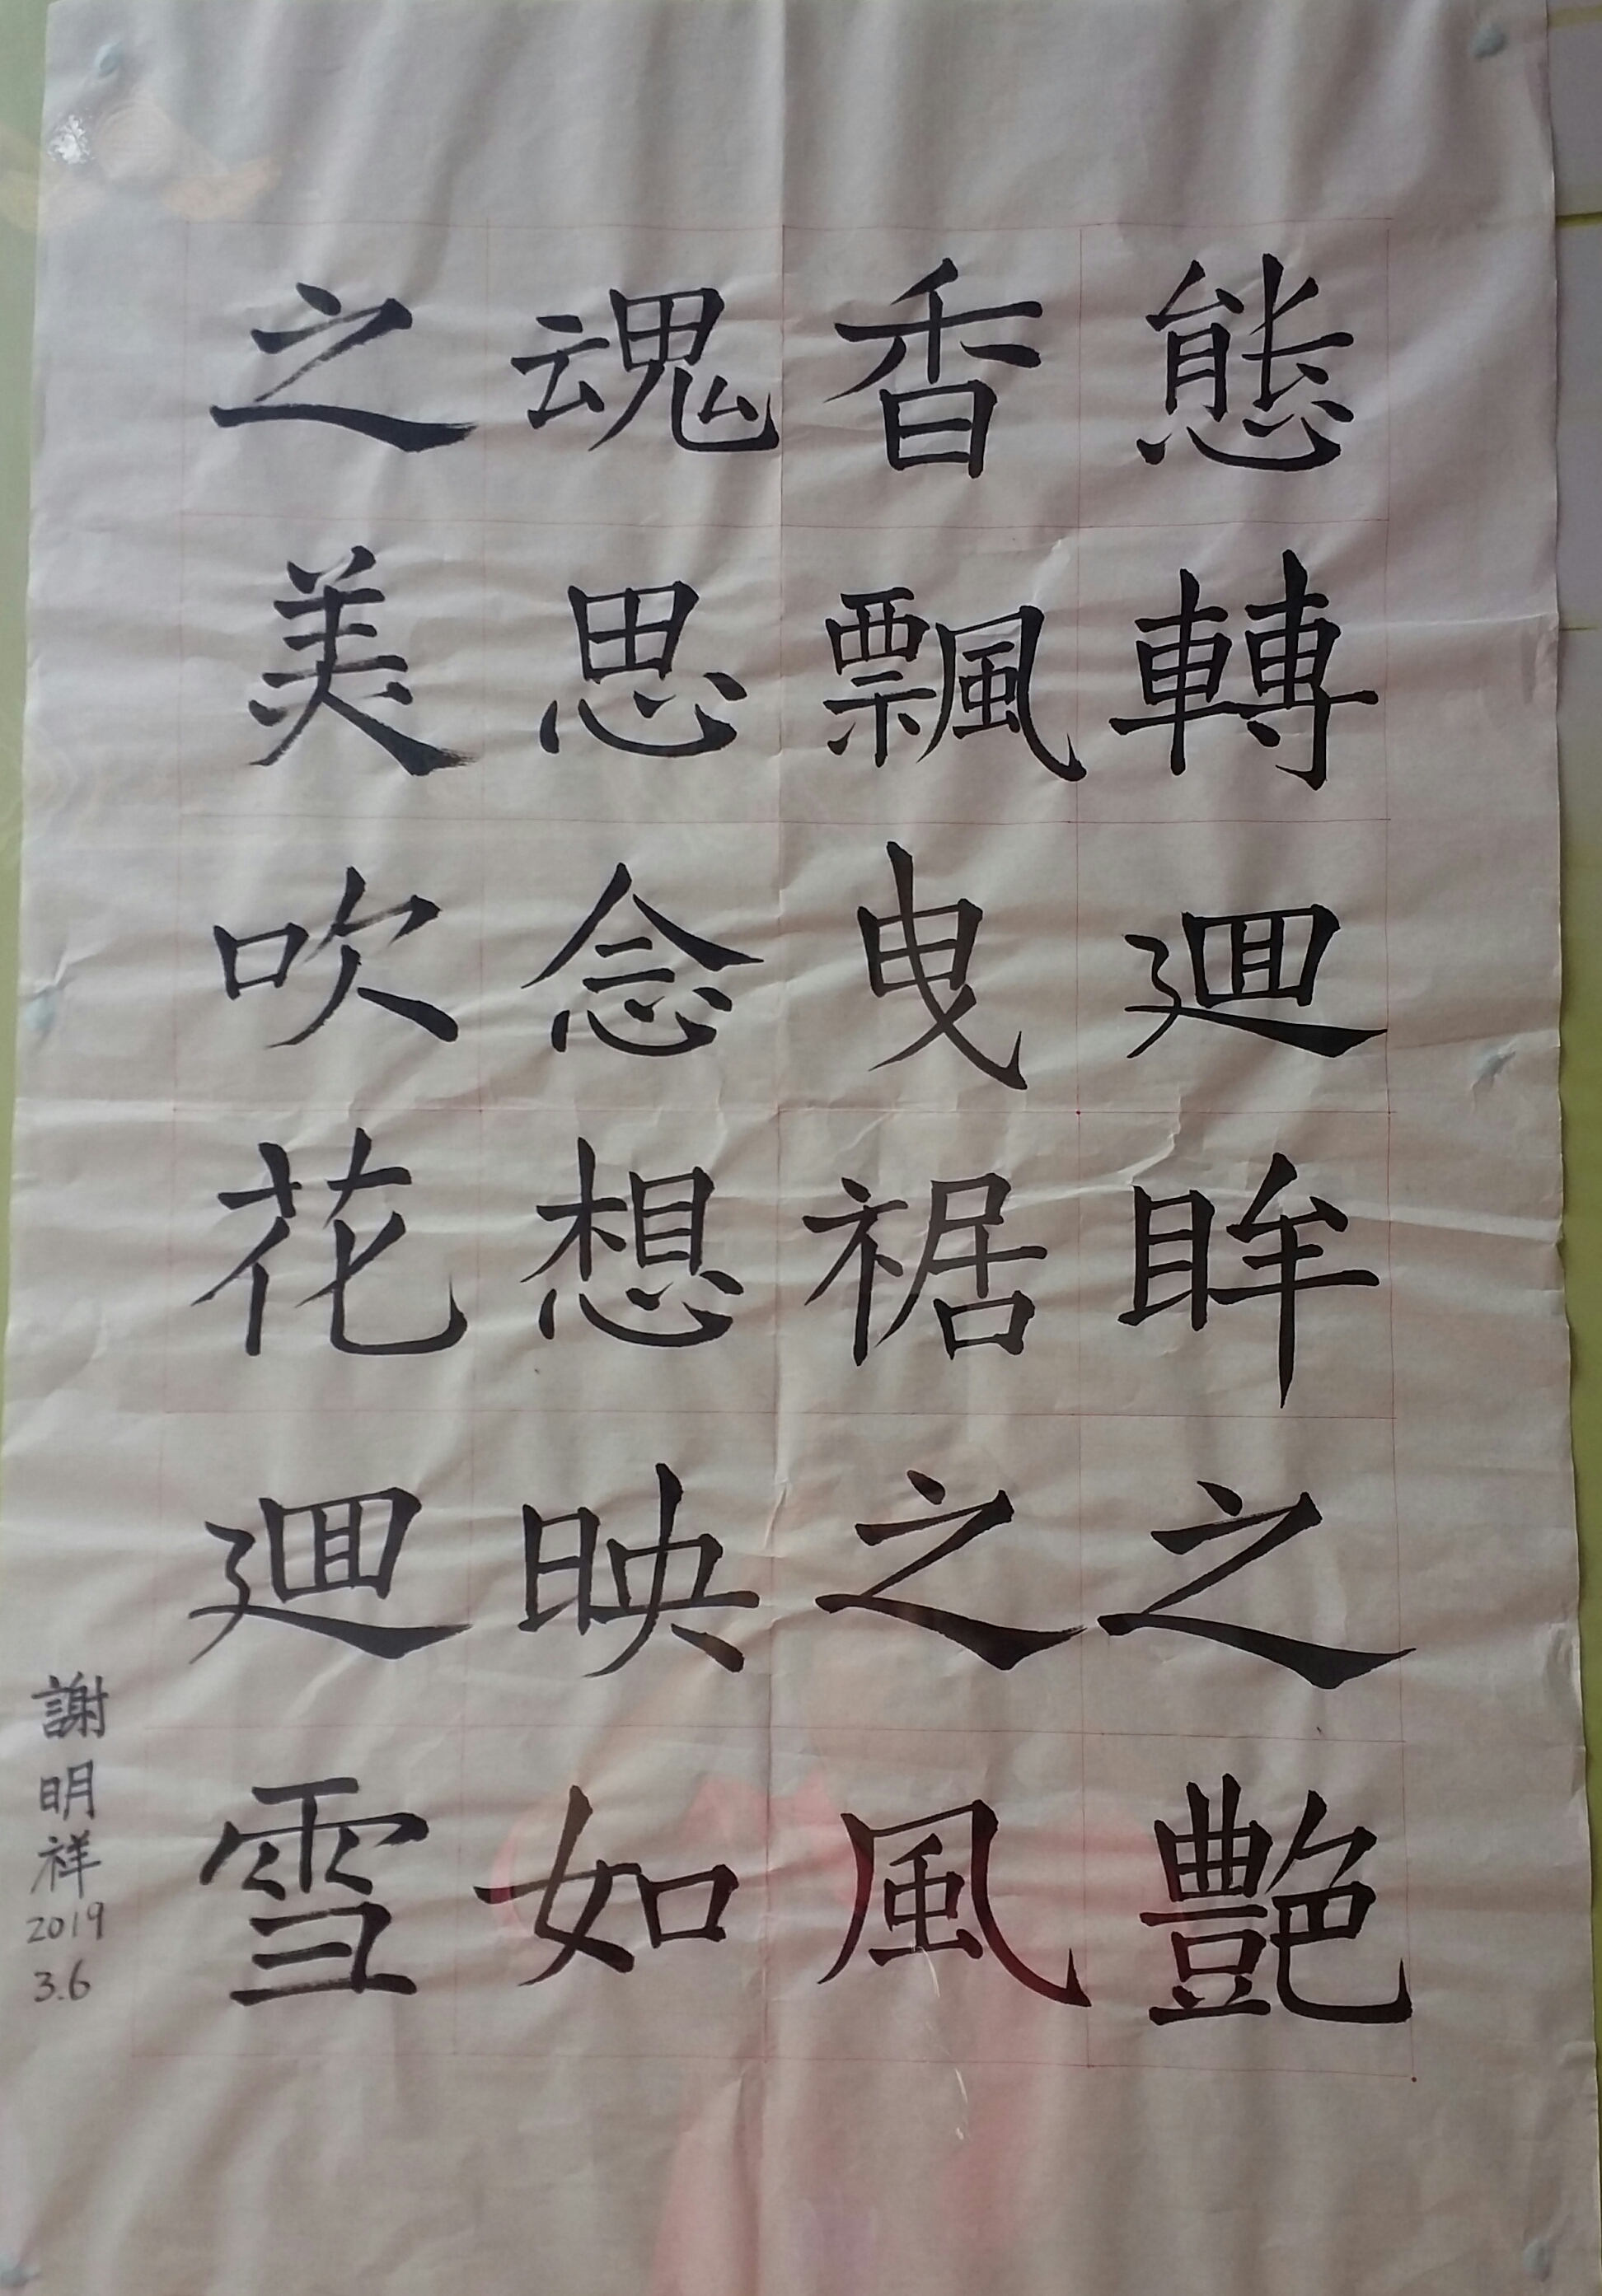 態轉廻眸之艷
香飄曳裾之風
魂思念想映如
之美吹花廻雪
謝明祥
2019
3.6